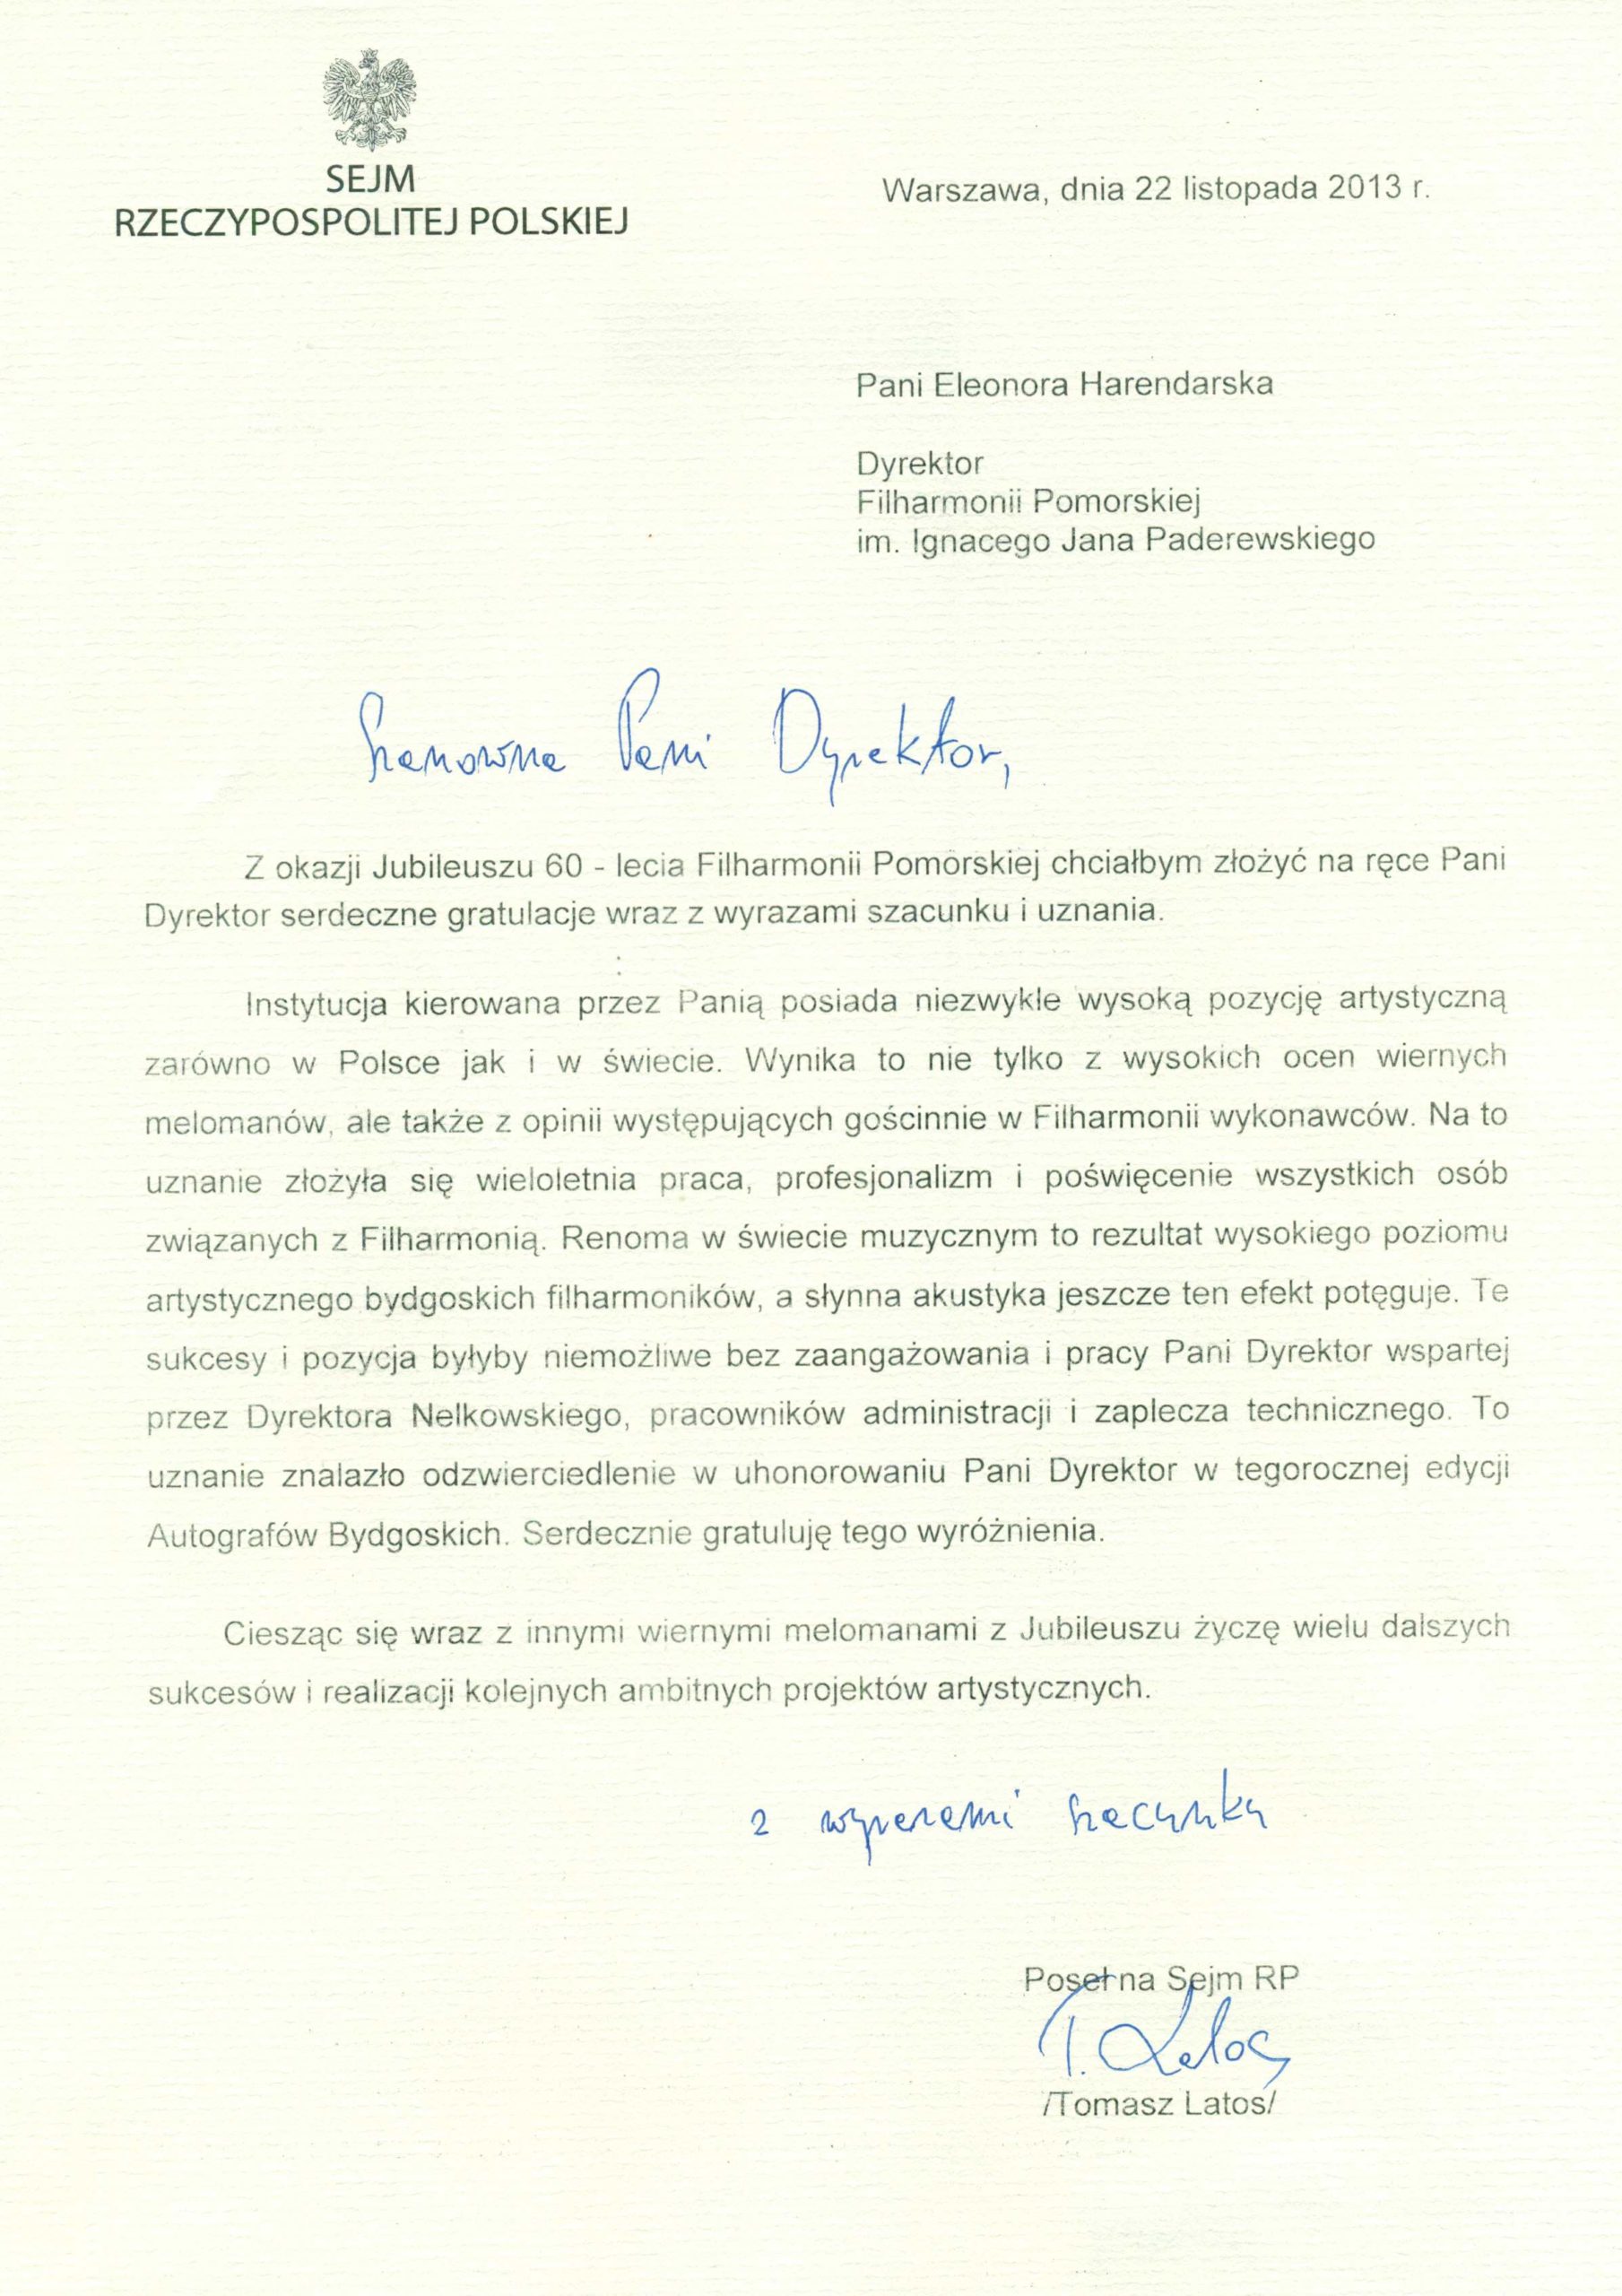 SEJM
RZECZYPOSPOLITEJ POLSKIEJ
Warszawa, dnia 22 listopada 2013 r.
Pani Eleonora Harendarska
Dyrektor
Filharmonii Pomorskiej
im. Ignacego Jana Paderewskiego
Szanowna Pani Dyrektor,
Z okazji Jubileuszu 60 - lecia Filharmonii Pomorskiej chciałbym złożyć na ręce Pani
Dyrektor serdeczne gratulacje wraz z wyrazami szacunku i uznania.
Instytucja kierowana przez Panią posiada niezwykle wysoką pozycję artystyczną
zarówno w Polsce jak i w świecie. Wynika to nie tylko z wysokich ocen wiernych
melomanów, ale także z opinii występujących gościnnie w Filharmonii wykonawców. Na to
uznanie złożyła się wieloletnia praca, profesjonalizm i poświęcenie wszystkich osób
związanych z Filharmonią. Renoma w świecie muzycznym to rezultat wysokiego poziomu
artystycznego bydgoskich filharmoników, a słynna akustyka jeszcze ten efekt potęguje. Te
sukcesy i pozycja byłyby niemożliwe bez zaangażowania i pracy Pani Dyrektor wspartej
przez Dyrektora Nelkowskiego, pracowników administracji i zaplecza technicznego. To
uznanie znalazło odzwierciedlenie w uhonorowaniu Pani Dyrektor w tegorocznej edycji
Autografów Bydgoskich. Serdecznie gratuluję tego wyróżnienia.
Ciesząc się wraz z innymi wiernymi melomanami z Jubileuszu życzę wielu dalszych
sukcesów i realizacji kolejnych ambitnych projektów artystycznych.
z wyrazami szacunku
Poseł na Sejm RP
T. Latos
/Tomasz Latos/